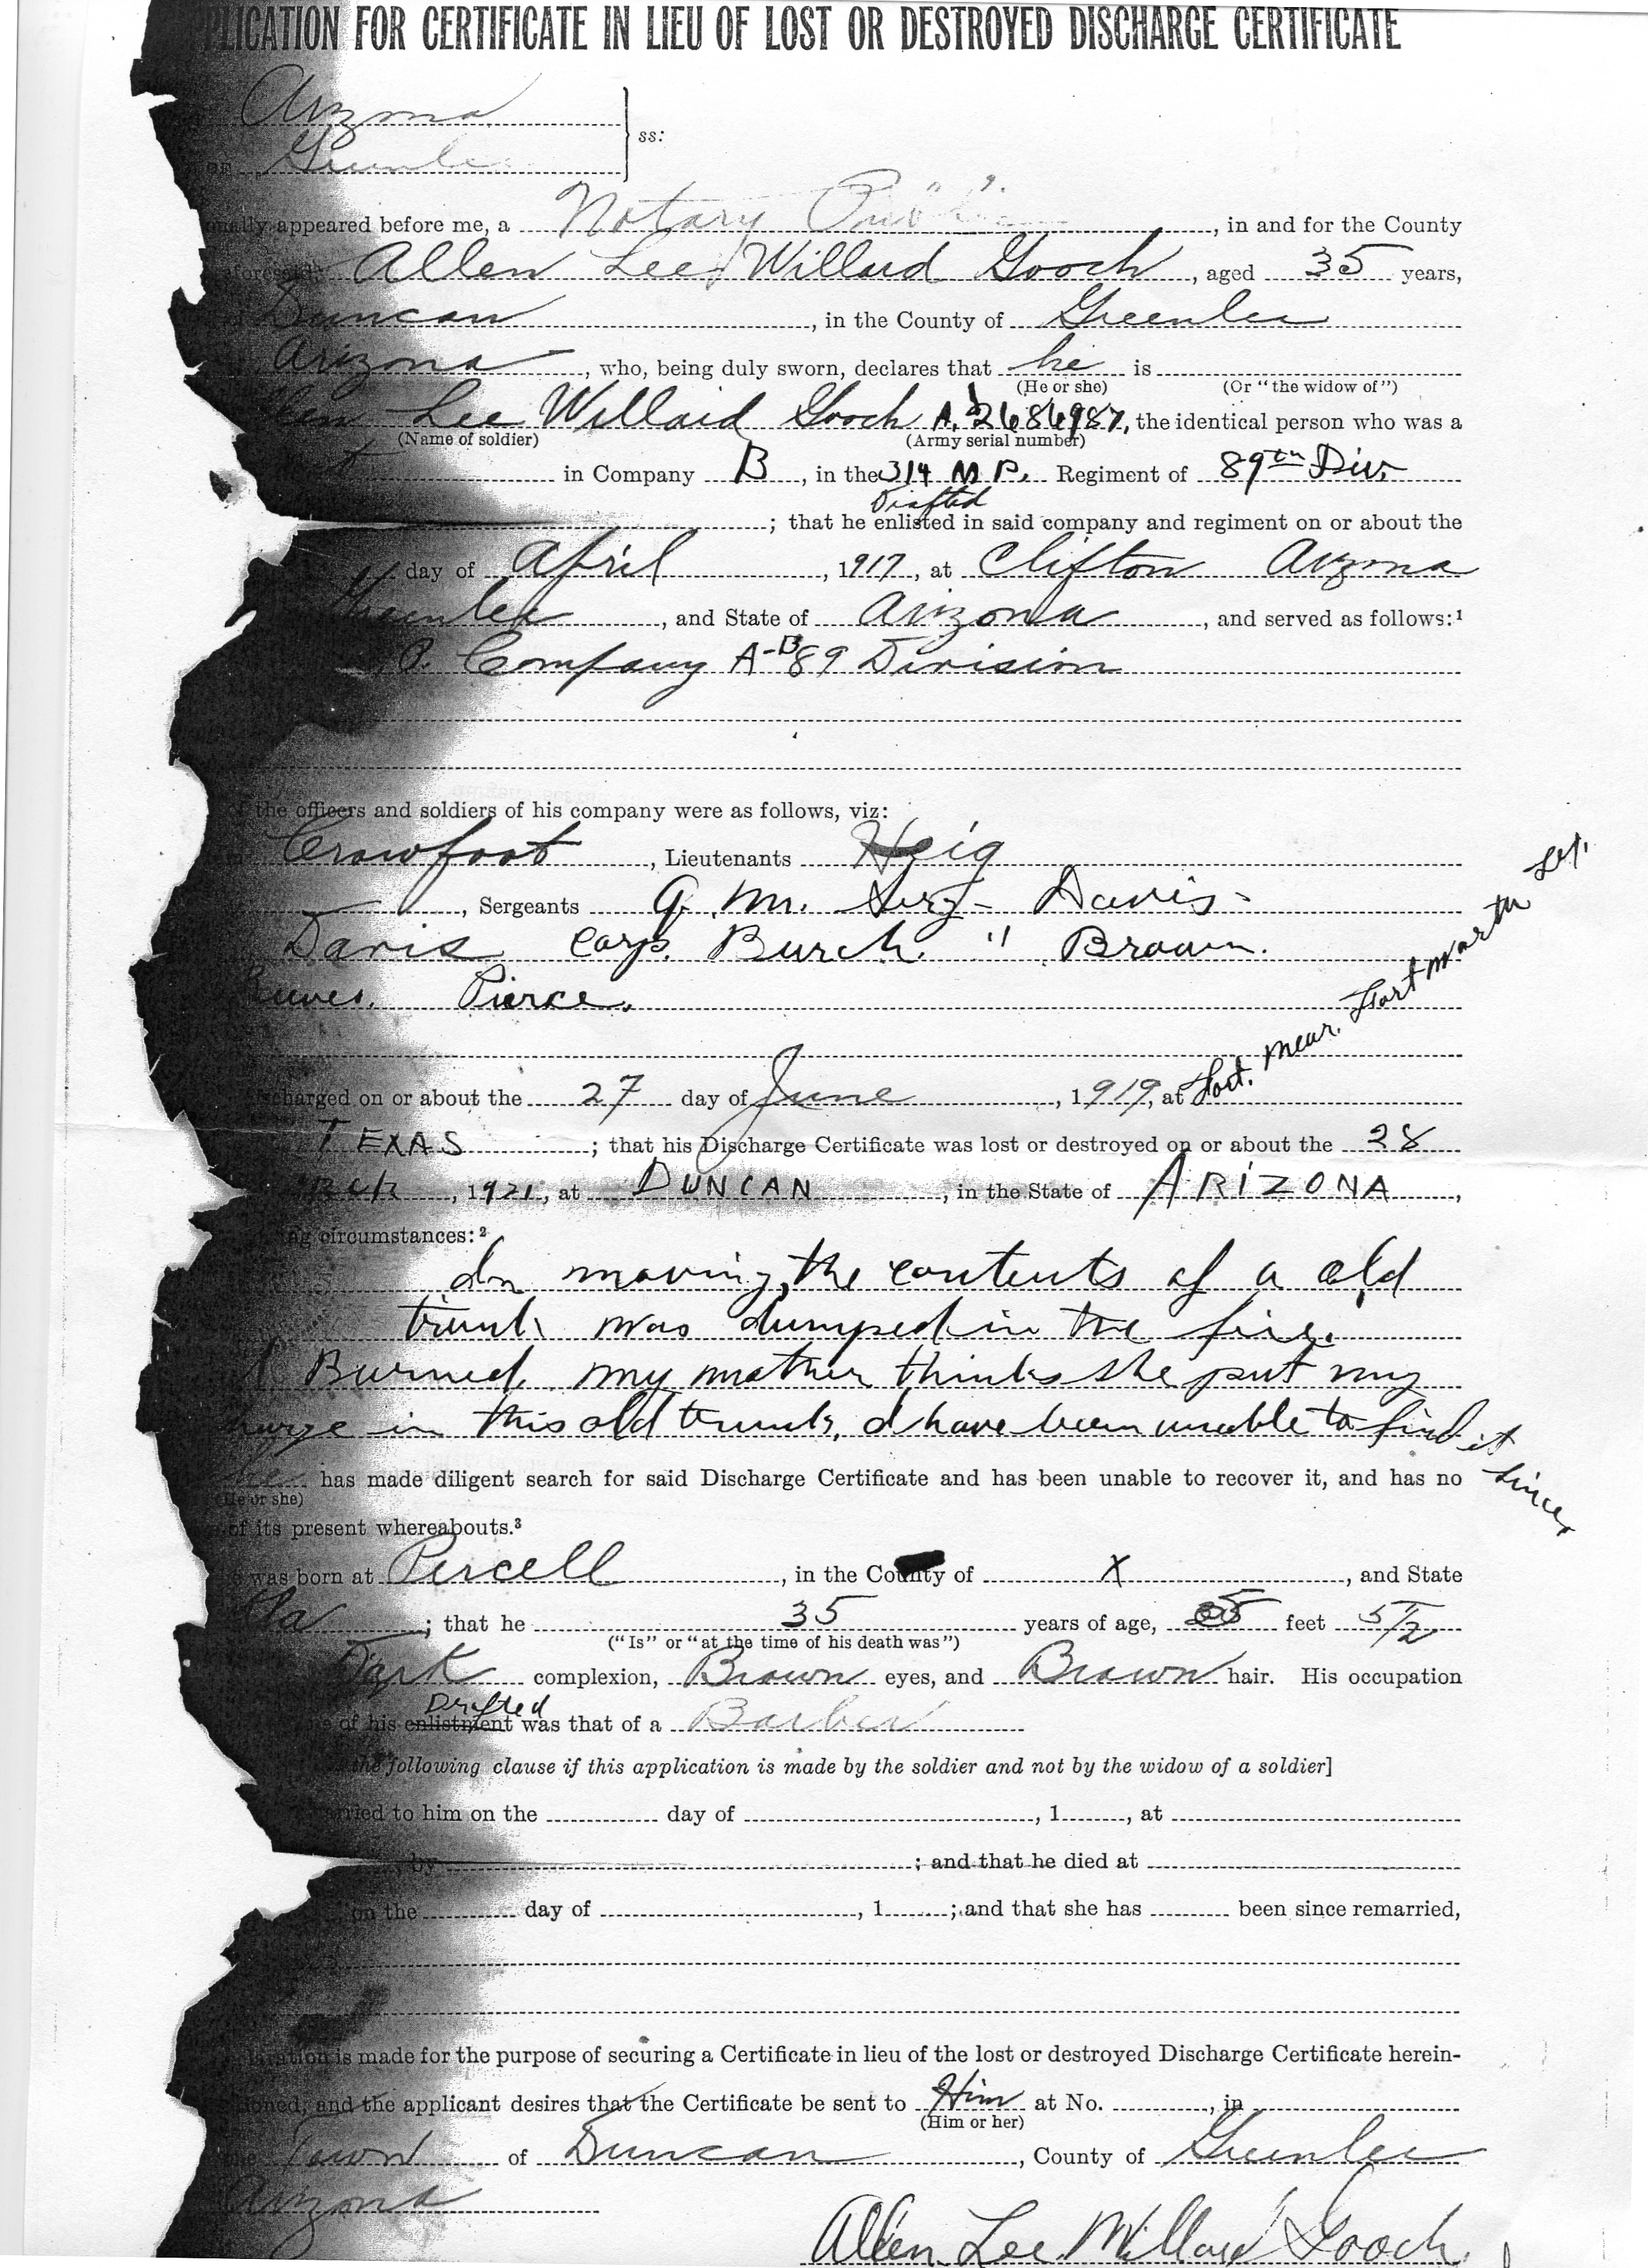 PLICATION FOR CERTIFICATE IN LIEU OF LOST OR DESTROYED DISCHARGE CERTIFICATE
Arizona
ss:
OF Greenlee
nally appeared before me, a Notary Public, in and for the County
aforesaid, Allen Lee Willard Gooch, aged 35 years,
Duncan, in the County of Greenlee
Arizona, who, being duly sworn, declares that he is
(He or she) (Or "the widow of")
llen Lee Willard Gooch A.S 2686987, the identical person who was a
(Name of soldier) (Army serial number)
in Company B, in the 314 M P. Regiment of 89th Div.
Drafted
; that he enlisted in said company and regiment on or about the
day of April, 1917, at Clifton Arizona
Greenlee, and State of Arizona, and served as follows:¹
P. Company A-B 89 Division
the officers and soldiers of his company were as follows, viz:
Crowfoot, Lieutenants Heig
, Sergeants Q. M. Serg- Davis-
Davis Corp. Burch. " Brown.
Reeves. Pierce.
scharged on or about the 27 day of June, 1919, at Fort. near. Fort Worth
TEXAS; that his Discharge Certificate was lost or destroyed on or about the 28
rch, 1921, at DUNCAN, in the State of ARIZONA,
ng circumstances:²
In moving, the contents of a old
trunk was dumped in the fire.
Burned. my mother thinks she put my
harge in this old trunk, I have been unable to find it
since
he has made diligent search for said Discharge Certificate and has been unable to recover it, and has no
(He or she)
of its present whereabouts.³
was born at Purcell, in the County of X, and State
; that he 35 years of age, 5 feet 5 1/2
("Is" or "at the time of his death was")
Dark complexion, Brown eyes, and Brown hair. His occupation
Drafted
of his enlistment was that of a Barber
the following clause if this application is made by the soldier and not by the widow of a soldier]
rried to him on the day of , 1 , at
, by ; and that he died at
on the day of , 1 ; and that she has been since remarried,
laration is made for the purpose of securing a Certificate in lieu of the lost or destroyed Discharge Certificate herein-
ioned, and the applicant desires that the Certificate be sent to Him at No. , in
(Him or her)
the Town of Duncan, County of Greenlee
Arizona
Allen Lee Willard Gooch.